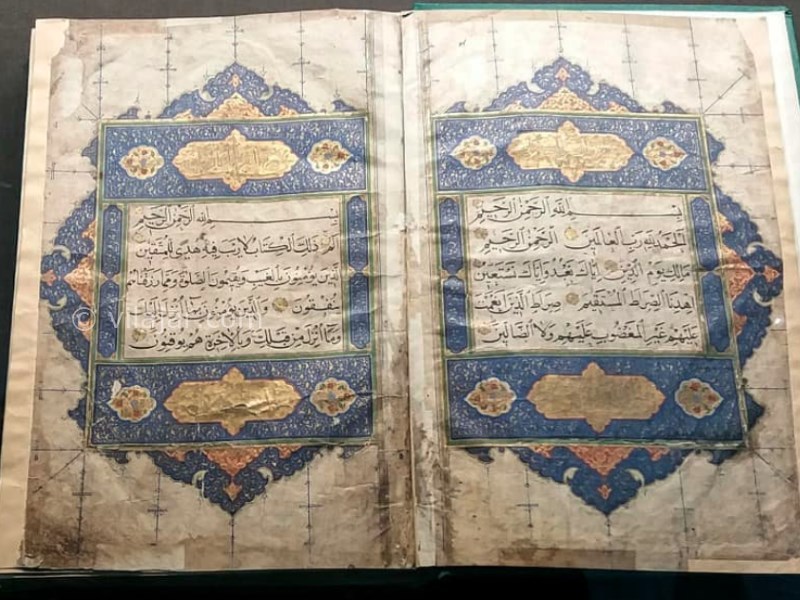 بسم الله الرحمن الرحيم
الحمد لله رب العالمين الرحمن الرحيم
مالك يوم الدين اياك نعبد واياك نستعين
اهدنا الصراط المستقيم صراط الذين انعمت
عليهم غير المغضوب عليهم ولا الضالين
بسم الله الرحمن الرحيم
الم ذلك الكتاب لا ريب فيه هدى للمتقين
الذين يؤمنون بالغيب ويقيمون الصلوة ومما رزقناهم
ينفقون والذين يؤمنون بما انزل اليك
وما انزل من قبلك وبالاخرة هم يوقنون